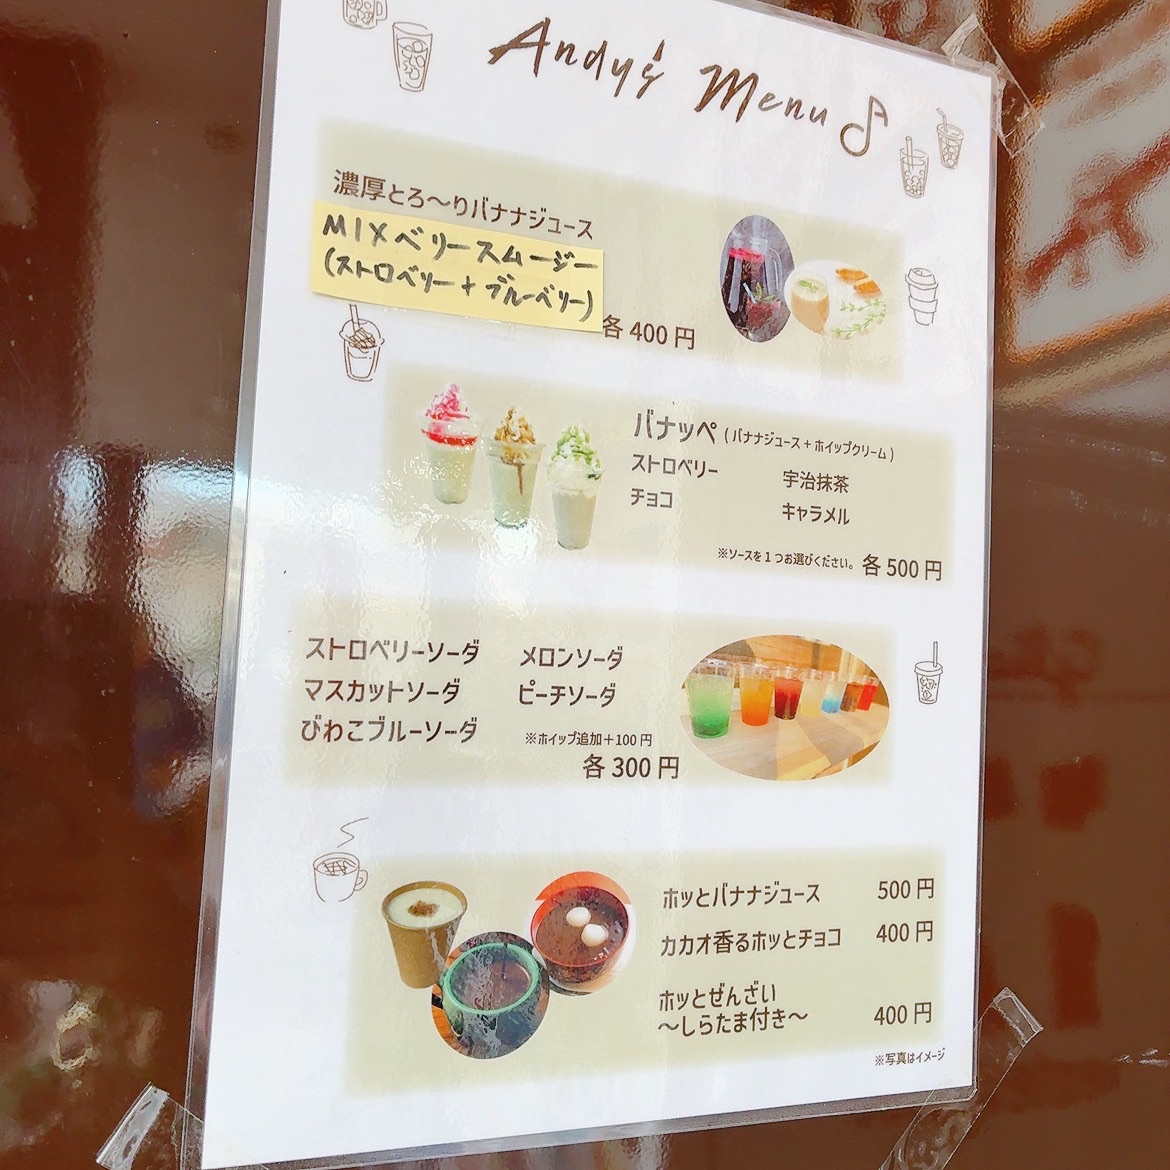 Andy's Menu
濃厚とろ〜りバナナジュース
MIXベリースムージー
(ストロベリー+ブルーベリー)
各 400 円
バナッペ (バナナジュース+ホイップクリーム)
ストロベリー 宇治抹茶
チョコ キャラメル
※ソースを1つお選びください。 各 500 円
ストロベリーソーダ メロンソーダ
マスカットソーダ ピーチソーダ
びわこブルーソーダ ※ホイップ追加+100円
各 300 円
ホッとバナナジュース 500 円
カカオ香るホッとチョコ 400 円
ホッとぜんざい
〜しらたま付き〜 400 円
※写真はイメージ